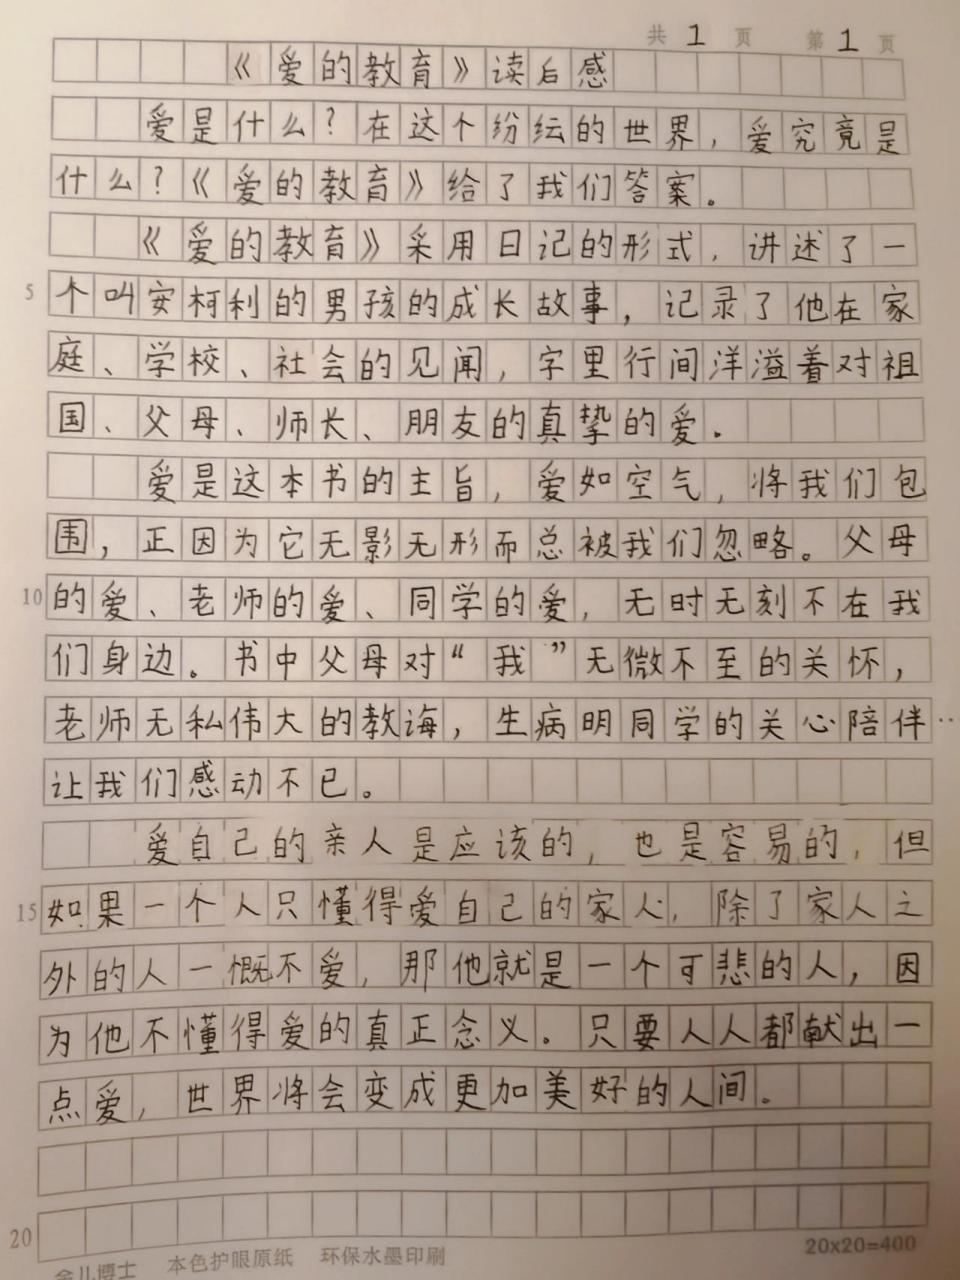 共 1 页 第 1 页
《爱的教育》读后感
爱是什么？在这个纷纭的世界，爱究竟是
什么？《爱的教育》给了我们答案。
《爱的教育》采用日记的形式，讲述了一
5 个叫安柯利的男孩的成长故事，记录了他在家
庭、学校、社会的见闻，字里行间洋溢着对祖
国、父母、师长、朋友的真挚的爱。
爱是这本书的主旨，爱如空气，将我们包
围，正因为它无影无形而总被我们忽略。父母
10 的爱、老师的爱、同学的爱，无时无刻不在我
们身边。书中父母对“我”无微不至的关怀，
老师无私伟大的教诲，生病明同学的关心陪伴…
让我们感动不已。
爱自己的亲人是应该的，也是容易的，但
15 如果一个人只懂得爱自己的家人，除了家人之
外的人一慨不爱，那他就是一个可悲的人，因
为他不懂得爱的真正念义。只要人人都献出一
点爱，世界将会变成更加美好的人间。
20
金儿博士 本色护眼原纸 环保水墨印刷 20x20=400